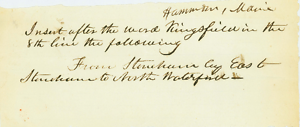 Hammon, Maria
Insert after the word Kingsfield in the
8th line the following
From Stoneham by East to
Stoneham to North Waterford —